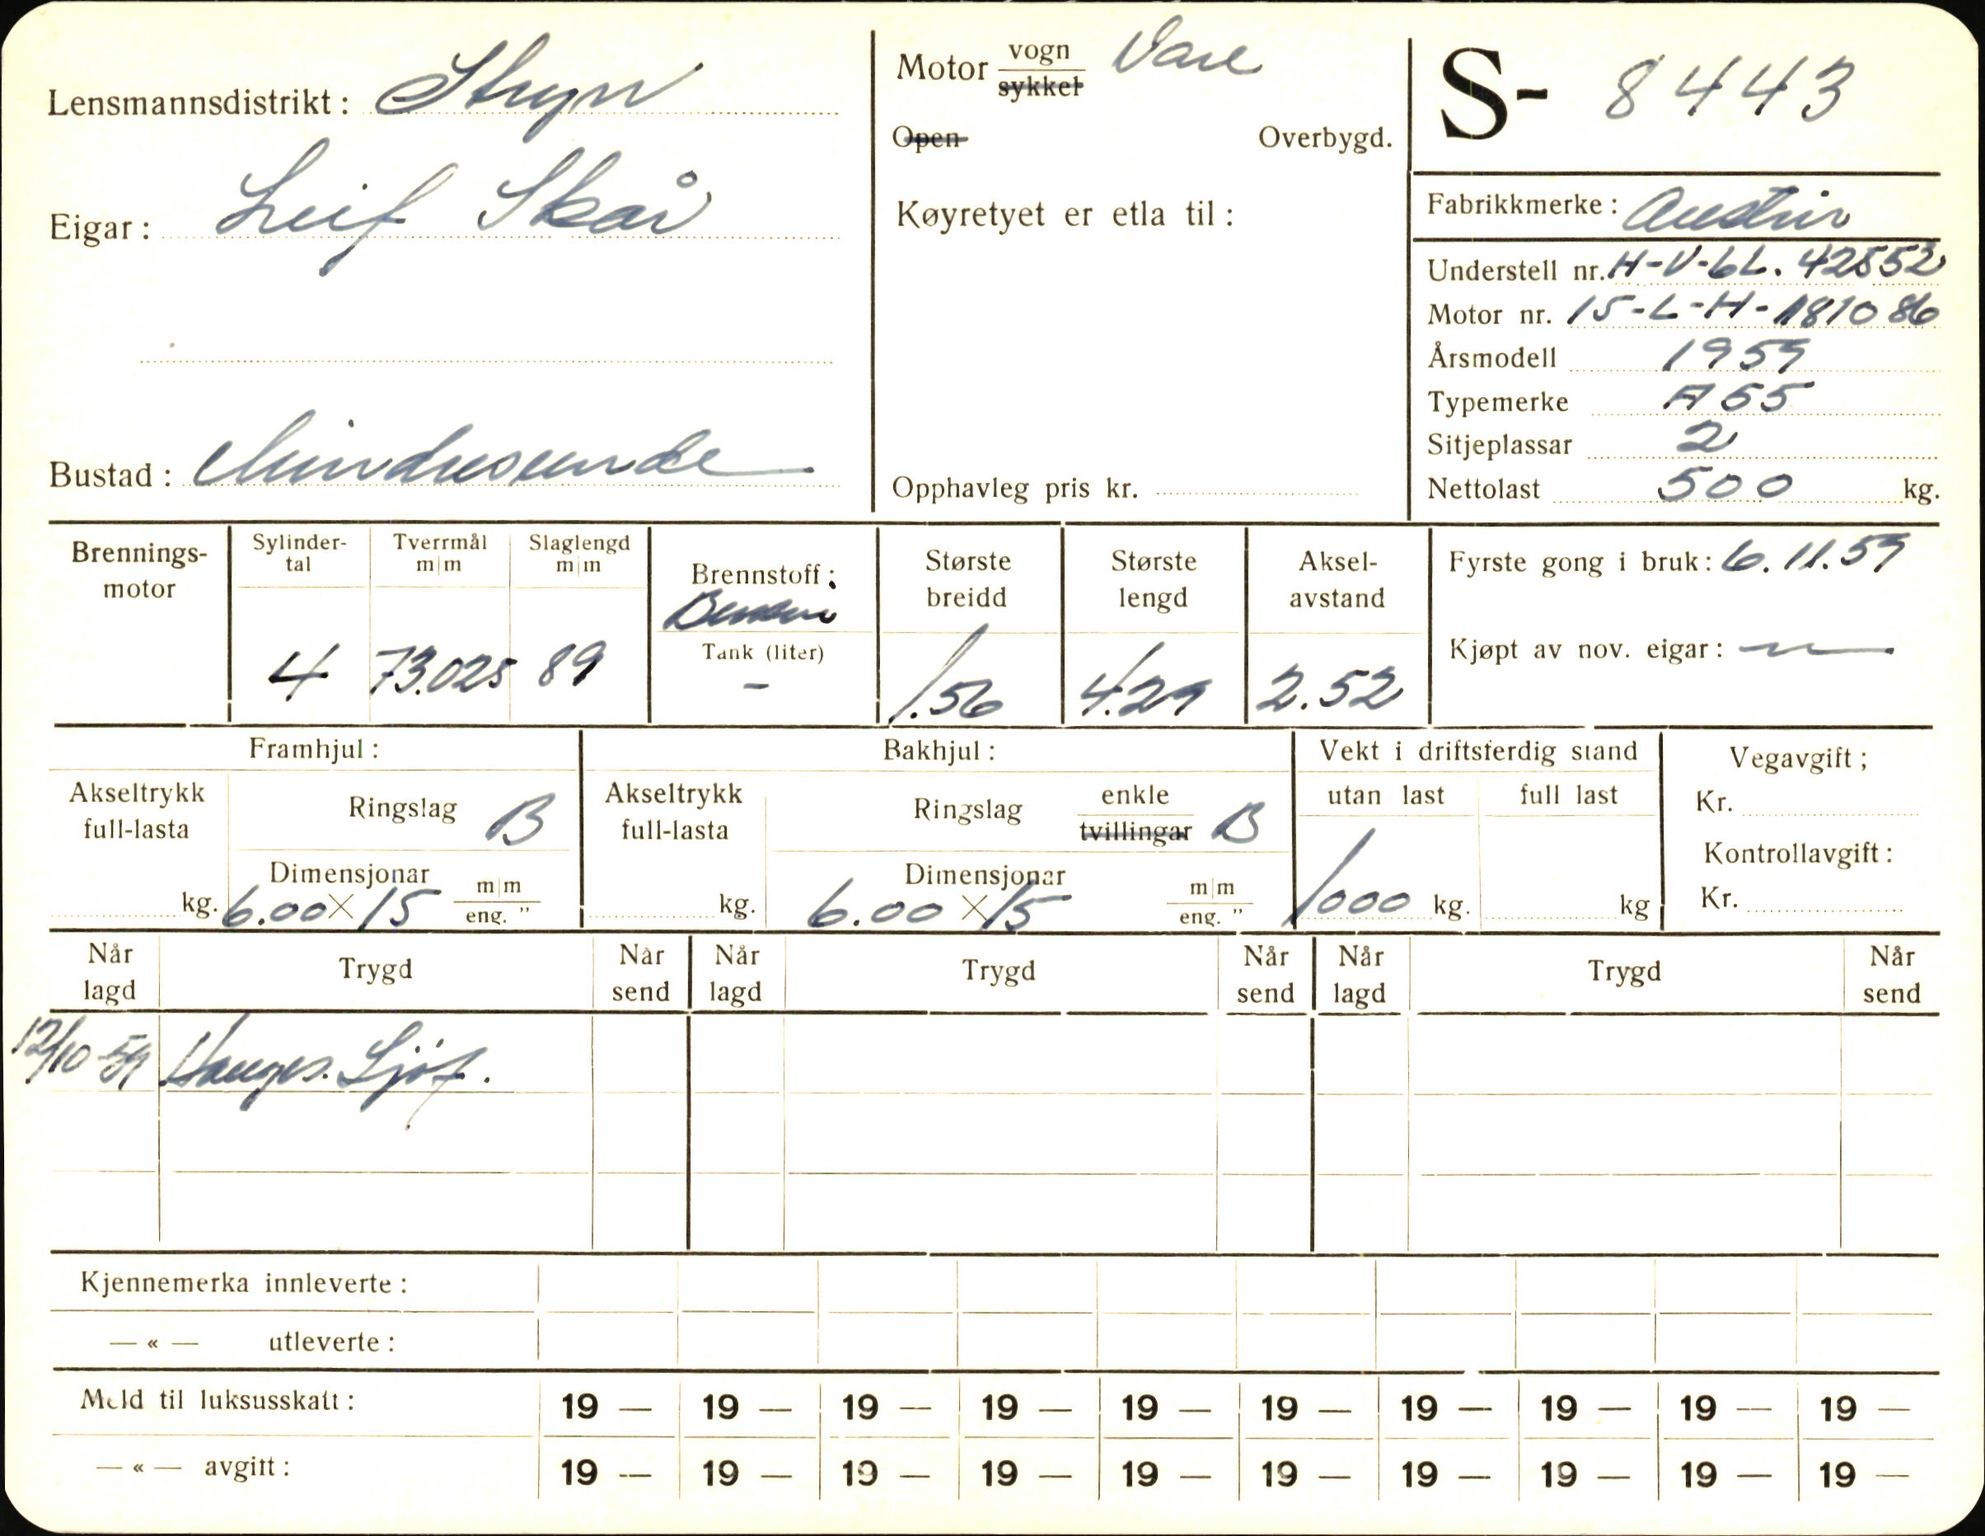 Lensmannsdistrikt: Stryn
Eigar: Leif Skår
Bustad: Mindresunde
Motor vogn Vare
sykkel
Open Overbygd.
Køyretyet er etla til:
Opphavleg pris kr.
S- 8443
Fabrikkmerke: Austin
Understell nr. H-V-6L. 42552
Motor nr. 15-L-H-181086
Årsmodell 1959
Typemerke A55
Sitjeplassar 2
Nettolast 500 kg.
Brennings-
motor
Sylinder-
tal
4
Tverrmål
m|m
73.025
Slaglengd
m|m
89
Brennstoff:
Bensin
Tank (liter)
-
Største
breidd
1.56
Største
lengd
4.29
Aksel-
avstand
2.52
Fyrste gong i bruk: 6.11.59
Kjøpt av nov. eigar: —"—
Framhjul:
Akseltrykk
full-lasta
kg.
Ringslag B
Dimensjonar
6.00 × 15 m|m
eng. "
Bakhjul:
Akseltrykk
full-lasta
kg.
Ringslag enkle
tvillingar B
Dimensjonar
6.00 × 15 m|m
eng. "
Vekt i driftsferdig stand
utan last full last
1000 kg. kg
Vegavgift;
Kr.
Kontrollavgift:
Kr.
Når
lagd
Trygd
Når
send
Når
lagd
Trygd
Når
send
Når
lagd
Trygd
Når
send
12/10-59 Hauges. Sjøf.
Kjennemerka innleverte:
— « — utleverte:
Meld til luksusskatt: 19 — 19 — 19 — 19 — 19 — 19 — 19 — 19 — 19 — 19 —
— « — avgift: 19 — 19 — 19 — 19 — 19 — 19 — 19 — 19 — 19 — 19 —